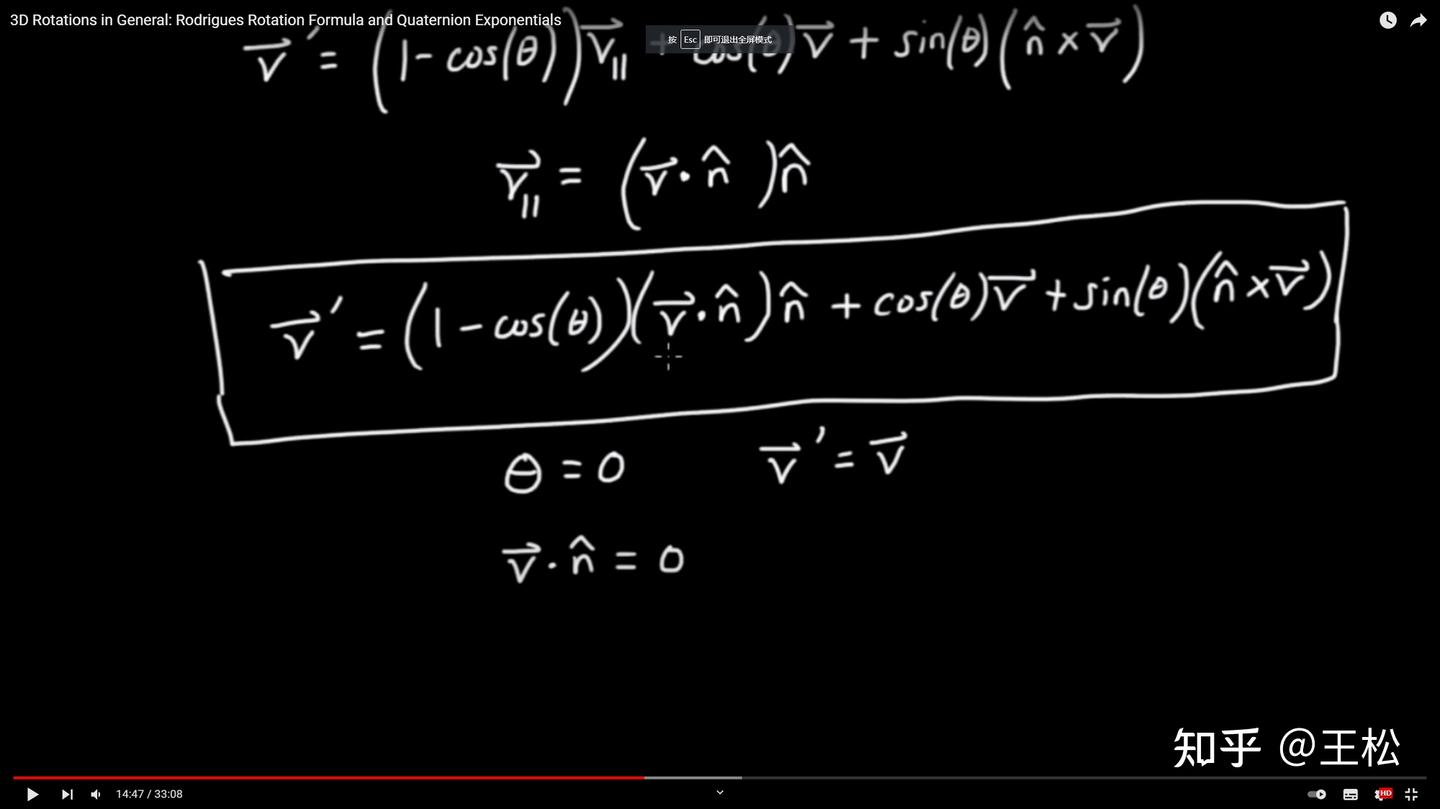 3D Rotations in General: Rodrigues Rotation Formula and Quaternion Exponentials
按 Esc 即可退出全屏模式
v⃗′ = (1 - cos(θ))v⃗∥ + cos(θ)v⃗ + sin(θ)(n̂ × v⃗)
v⃗∥ = (v⃗ · n̂)n̂
v⃗′ = (1 - cos(θ))(v⃗ · n̂)n̂ + cos(θ)v⃗ + sin(θ)(n̂ × v⃗)
θ = 0 v⃗′ = v⃗
v⃗ · n̂ = 0
知乎 @王松
14:47 / 33:08
HD